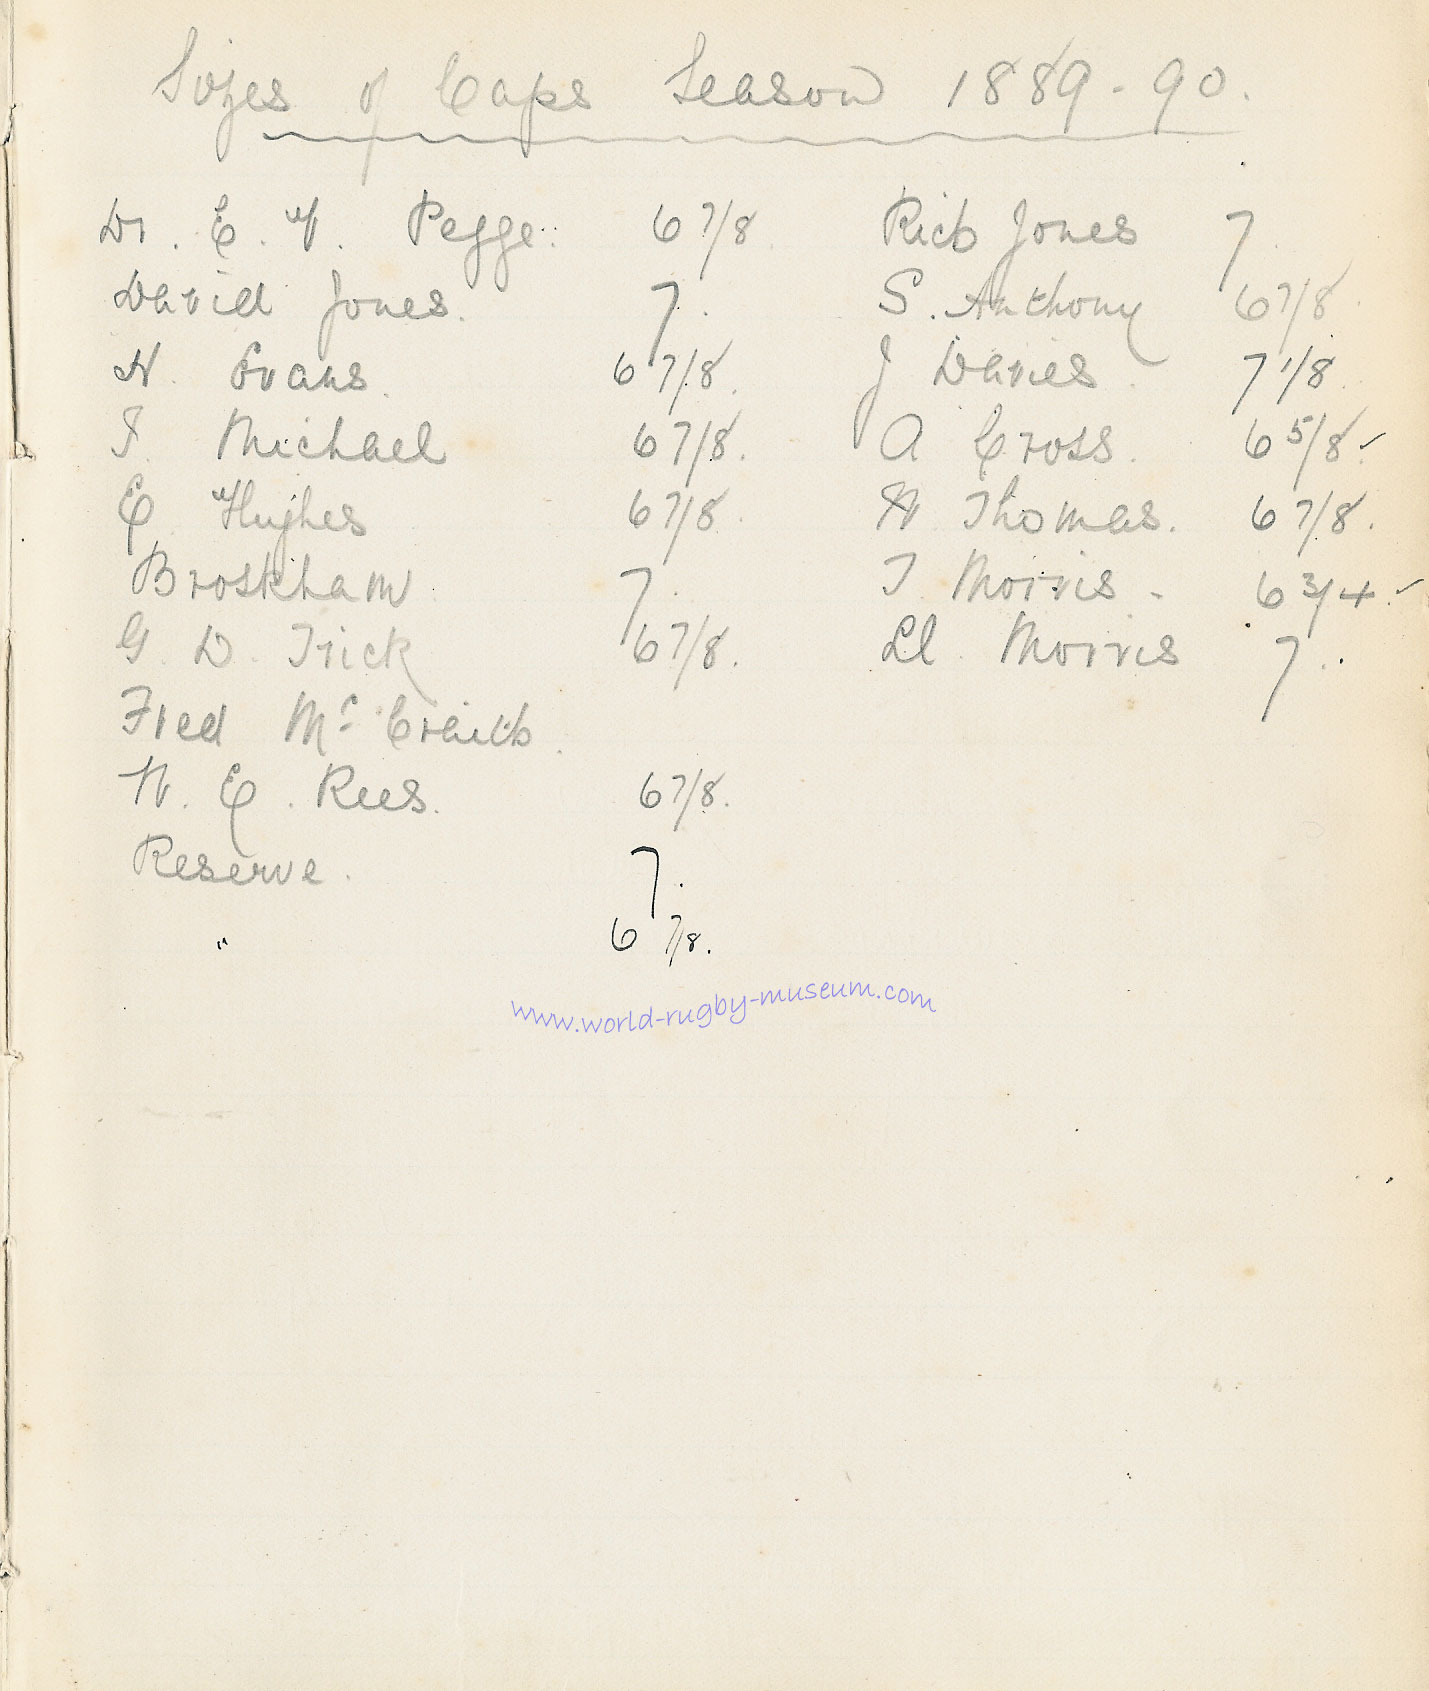 Sizes of Caps Season 1889-90.
Dr. E. V. Pegge. 6 7/8
David Jones. 7.
Evans. 6 7/8.
Michael 6 7/8.
E. Hughes 6 7/8.
7.
G. D. Trick 6 7/8.
Fred Mc
W. E. Rees. 6 7/8.
Reserve. 7.
" 6 7/8.
Rich Jones 7
S. Anthony 6 7/8.
J Davies. 7 1/8.
A Cross. 6 5/8.
W Thomas. 6 7/8.
T Morris - 6 3/4.
Ll. Morris 7..
www.world-rugby-museum.com